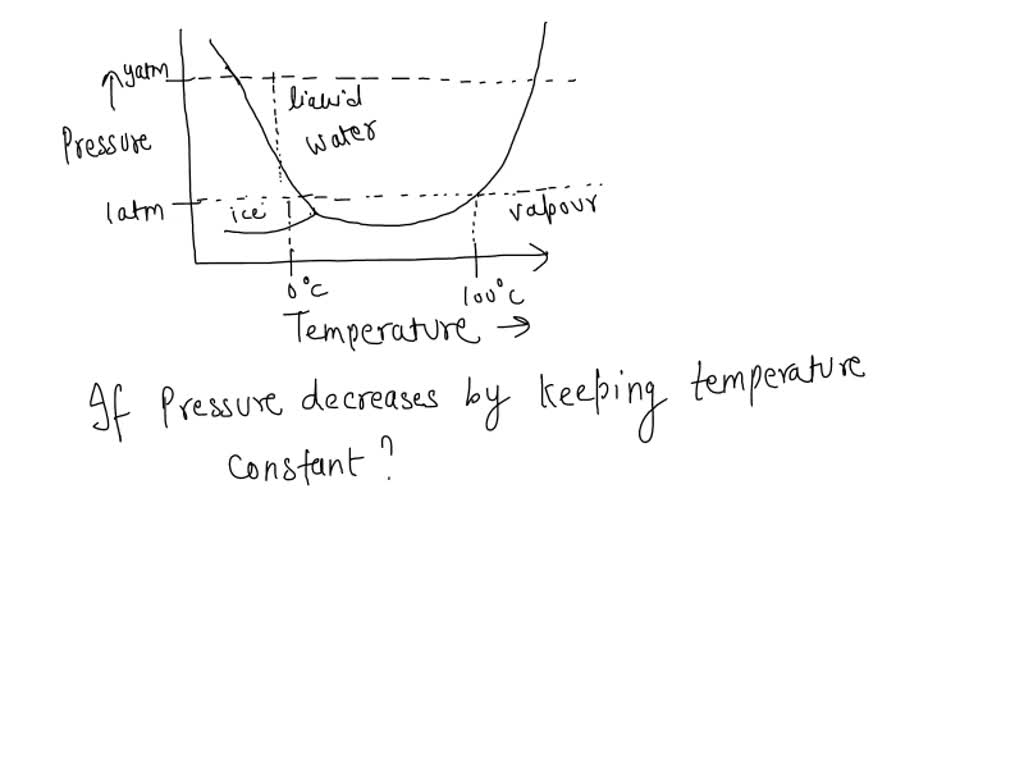 ↑ yatm
liquid
water
Pressure
1 atm
ice
vapour
0°C
100°C
Temperature →
If Pressure decreases by keeping temperature
constant?